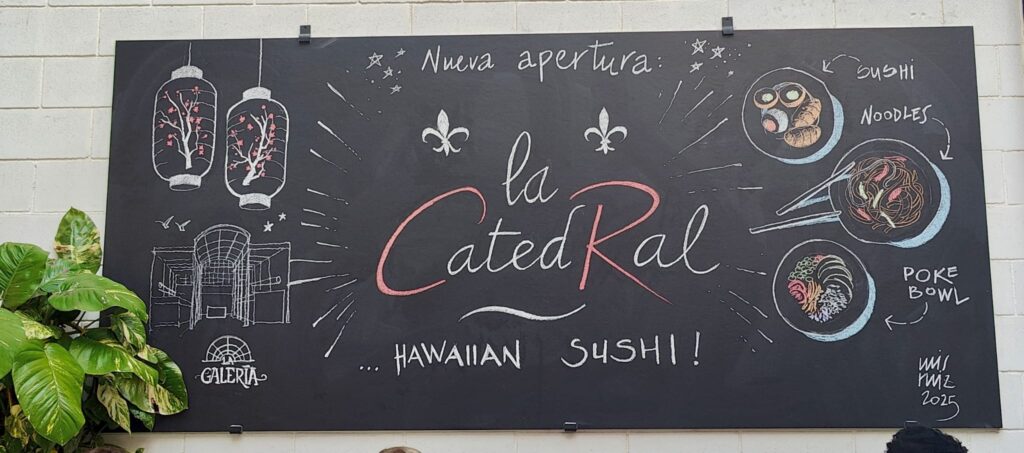 Nueva apertura:
la
CatedRal
... HAWAIIAN SUSHI!
SUSHI
NOODLES
POKE
BOWL
LA
GALERÍA
2025